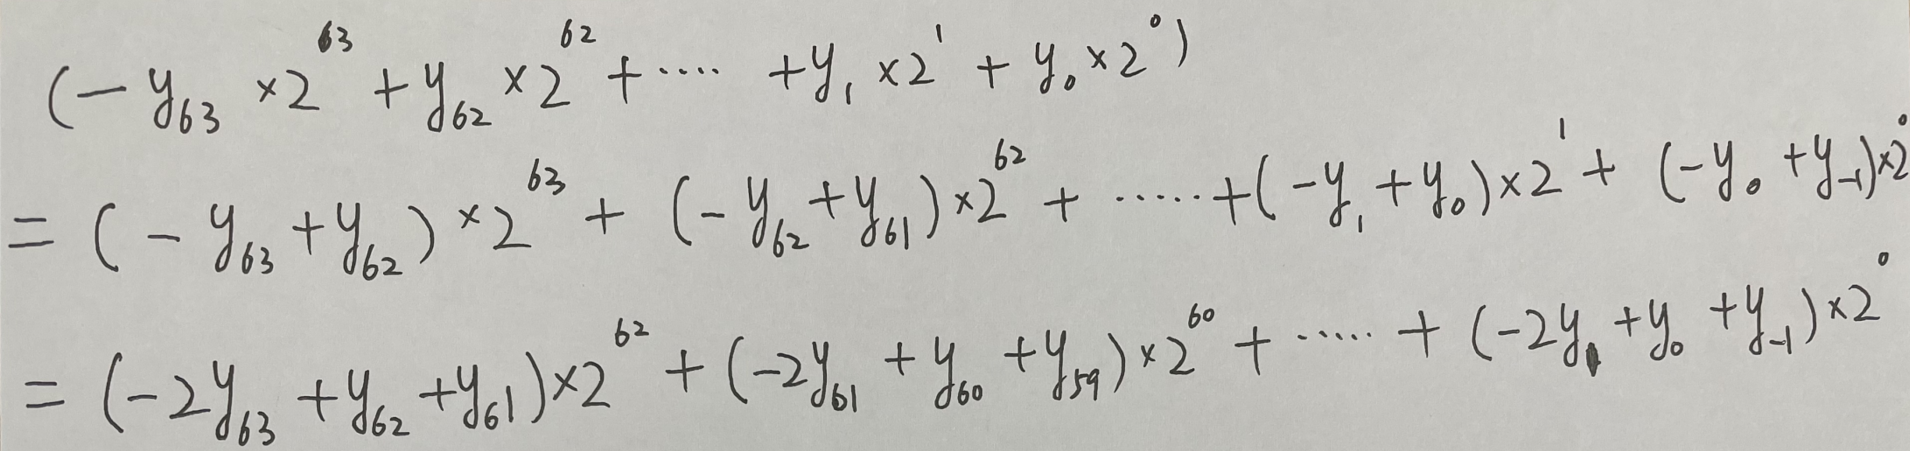 (-y₆₃ ×2⁶³ +y₆₂ ×2⁶² +···· +y₁ ×2¹ + y₀ ×2⁰)
= (-y₆₃ +y₆₂) ×2⁶³ + (-y₆₂ +y₆₁) ×2⁶² + ····· +(-y₁ +y₀) ×2¹ + (-y₀ +y₋₁)×2⁰
= (-2y₆₃ +y₆₂ +y₆₁)×2⁶² + (-2y₆₁ +y₆₀ +y₅₉)×2⁶⁰ + ····· + (-2y₁ +y₀ +y₋₁)×2⁰